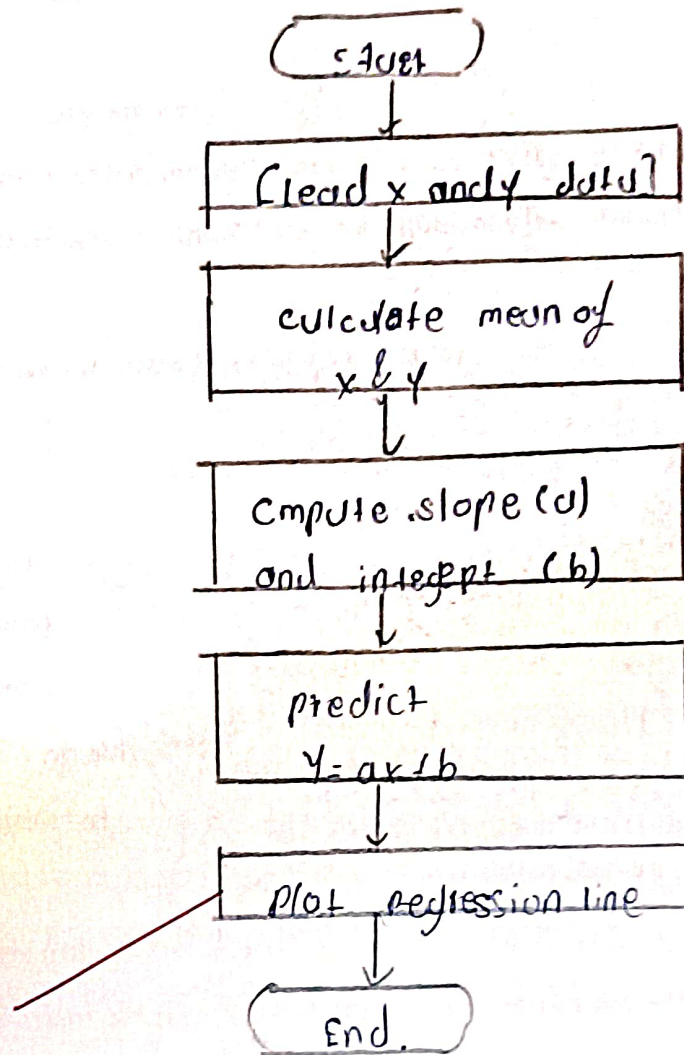 start
Read x and y data
calculate mean of
x & y
cmpute slope (a)
and integept (b)
predict
Y = ax + b
plot regression line
End.